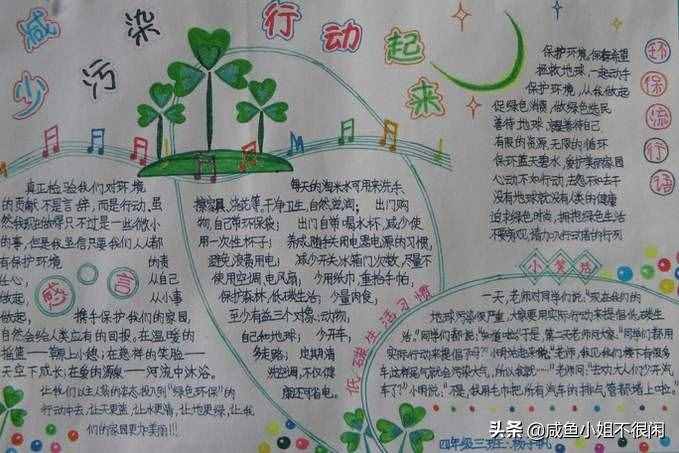 减少污染
行动起来
环保流行语
保护环境,保存希望
拯救地球,一起动手
保护环境,从我做起
促绿色消费,做绿色选民
善待地球,善待自己
有限的资源,无限的循环
保环蓝天碧水,爱护美丽家园
心动不如行动
没有地球就没有人类的健康
追求绿色时尚,拥抱绿色生活
真正检验我们对环境
的贡献不是言辞,而是行动,虽
然我现在做得只不过是一些微小
的事,但是我坚信只要我们人人都
有保护环境 的责
从自己
做起, 从小事
做起; 携手保护我们的家园,
自然会给人类应有的回报。在温暖的
摇篮——草原上小憩;在慈祥的笑脸——
天空下成长;在鱼的源泉——河流中沐浴。
让我们以主人翁的姿态投入到“绿色环保”的
行动中去,让天更蓝,让水更清,让地更绿,让我
们的家园更加美丽!!!
感言
每天的淘米水可用来洗手、
擦家具、浇花等。干净卫生,自然滋润; 出门购
物,自己带环保袋; 出门自带喝水杯,减少使
用一次性杯子; 养成随手关用电器电源的习惯,
避免浪费用电; 减少开关冰箱门次数,尽量不
使用空调,电风扇; 少用纸巾,重拾手帕,
保护森林,低碳生活; 少量肉食,
至少有益三个对象:动物,
自己和地球; 少开车,
多走路; 定期清
洗空调,不仅健
康还可省电。
低碳生活习惯
小笑话
一天,老师对同学们说:“现在我们的
地球污染很严重,大家要用实际行动来提倡低碳生
活。”同学们都说:“知道啦!”于是,第二天老师问大家:“同学们都用
实际行动来提倡了吗?”小明站起来说:“老师,我见我们楼下有很多
车,这样尾气就会污染大气,所以就……”老师问:“去劝大人们少开汽
车了?”小明说:“不,我用毛巾把所有汽车的排气管都堵上啦。”
四年级三班:杨
头条 @咸鱼小姐不很闲